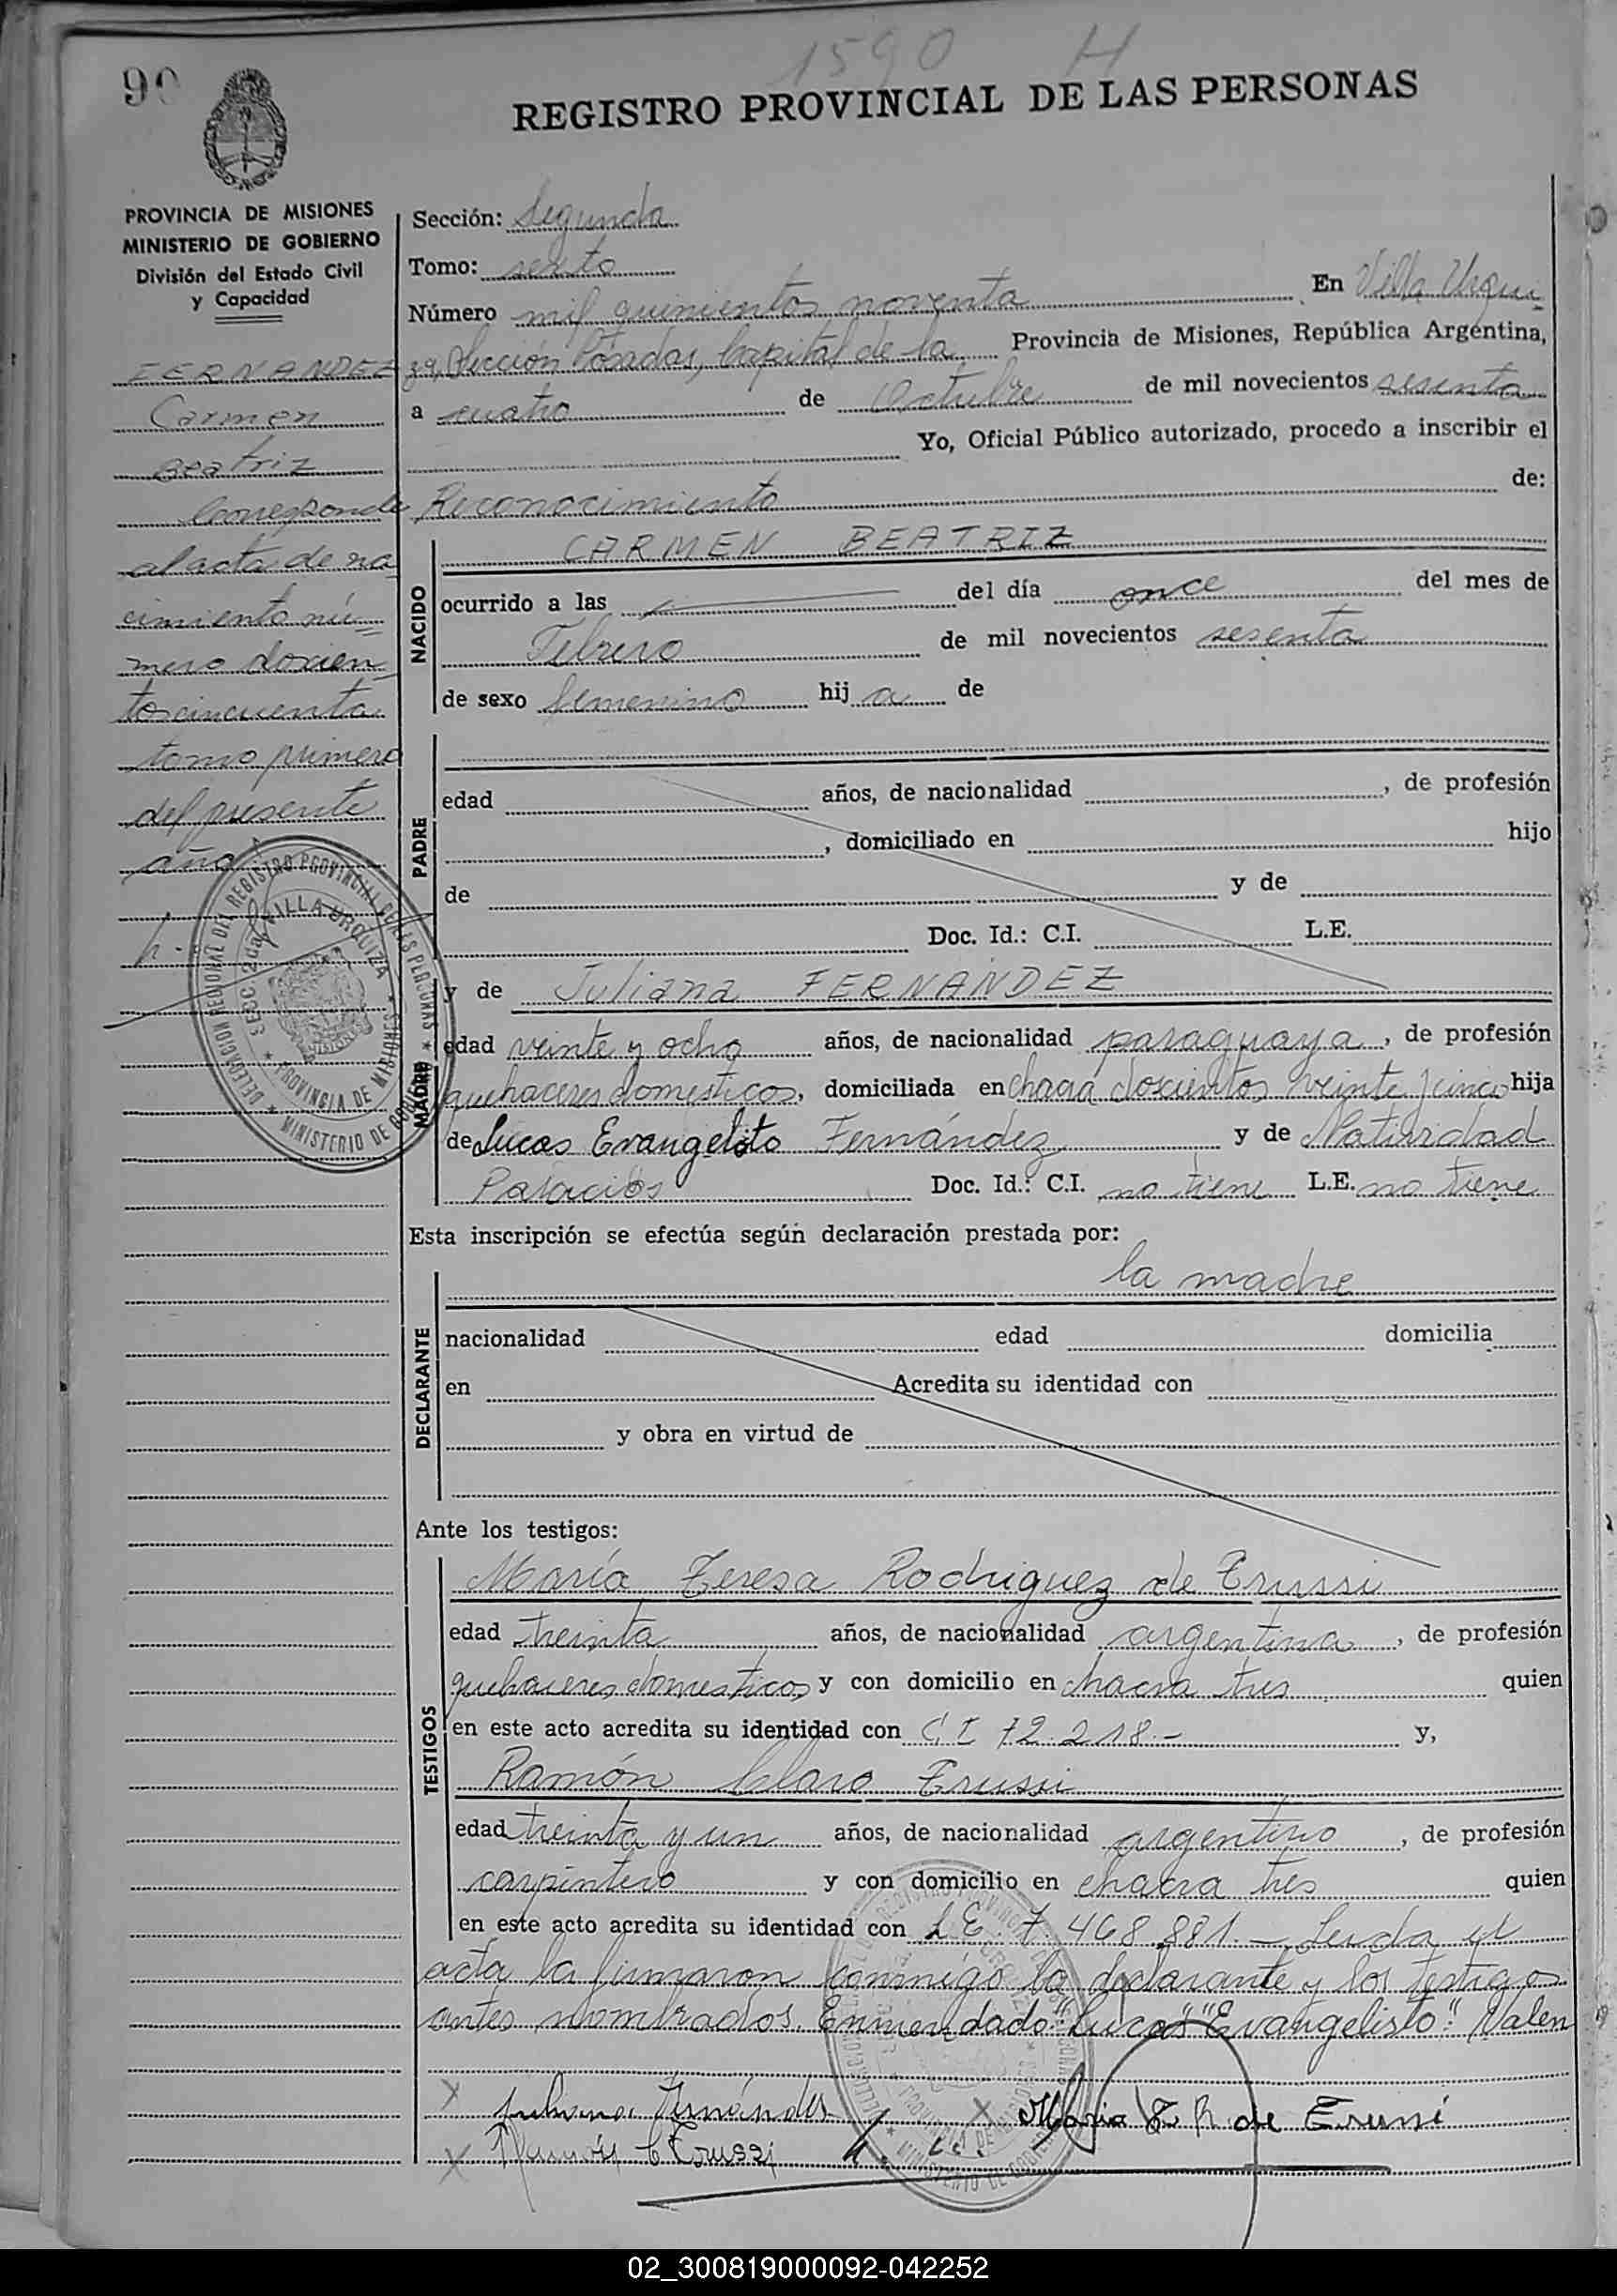 1590 H
90
REGISTRO PROVINCIAL DE LAS PERSONAS
PROVINCIA DE MISIONES
MINISTERIO DE GOBIERNO
División del Estado Civil
y Capacidad
FERNANDEZ
Carmen
Beatriz
Corresponde
al acta de na
cimiento nú=
mero doscien
tos cincuenta
tomo primero
del presente
año
Sección: Segunda
Tomo: sexto
Número mil quinientos noventa En Villa Urqui
za, Sección Posadas, Capital de la Provincia de Misiones, República Argentina,
a cuatro de Octubre de mil novecientos sesenta
Yo, Oficial Público autorizado, procedo a inscribir el
Reconocimiento de:
NACIDO
CARMEN BEATRIZ
ocurrido a las del día once del mes de
Febrero de mil novecientos sesenta
de sexo femenino hij a de
PADRE
edad años, de nacionalidad , de profesión
, domiciliado en hijo
de y de
Doc. Id.: C.I. L.E.
MADRE
y de Juliana FERNANDEZ
edad veinte y ocho años, de nacionalidad paraguaya, de profesión
quehaceres domesticos, domiciliada en chacra doscientos veinte y cinco hija
de Lucas Evangelisto Fernández y de Natividad
Palacios Doc. Id.: C.I. no tiene L.E. no tiene
Esta inscripción se efectúa según declaración prestada por:
la madre
DECLARANTE
nacionalidad edad domicilia
en Acredita su identidad con
y obra en virtud de
Ante los testigos:
TESTIGOS
María Teresa Rodriguez de Erussi
edad treinta años, de nacionalidad argentina, de profesión
quehaceres domesticos y con domicilio en chacra tres quien
en este acto acredita su identidad con C.I 72.218.- y,
Ramón Claro Erussi
edad treinta y un años, de nacionalidad argentino, de profesión
carpintero y con domicilio en chacra tres quien
en este acto acredita su identidad con L.E. 7.468.881.- Leida el
acta la firmaron conmigo la declarante y los testigos
antes nombrados. Enmendado: "Lucas" "Evangelisto": Valen
Juliana Fernández
Maria T R de Erussi
Ramón C Erussi
DELEGACION REGIONAL DEL REGISTRO PROVINCIAL DE LAS PERSONAS
SECC. 2da. VILLA URQUIZA
PROVINCIA DE MISIONES
MINISTERIO DE GOBIERNO
02_300819000092-042252